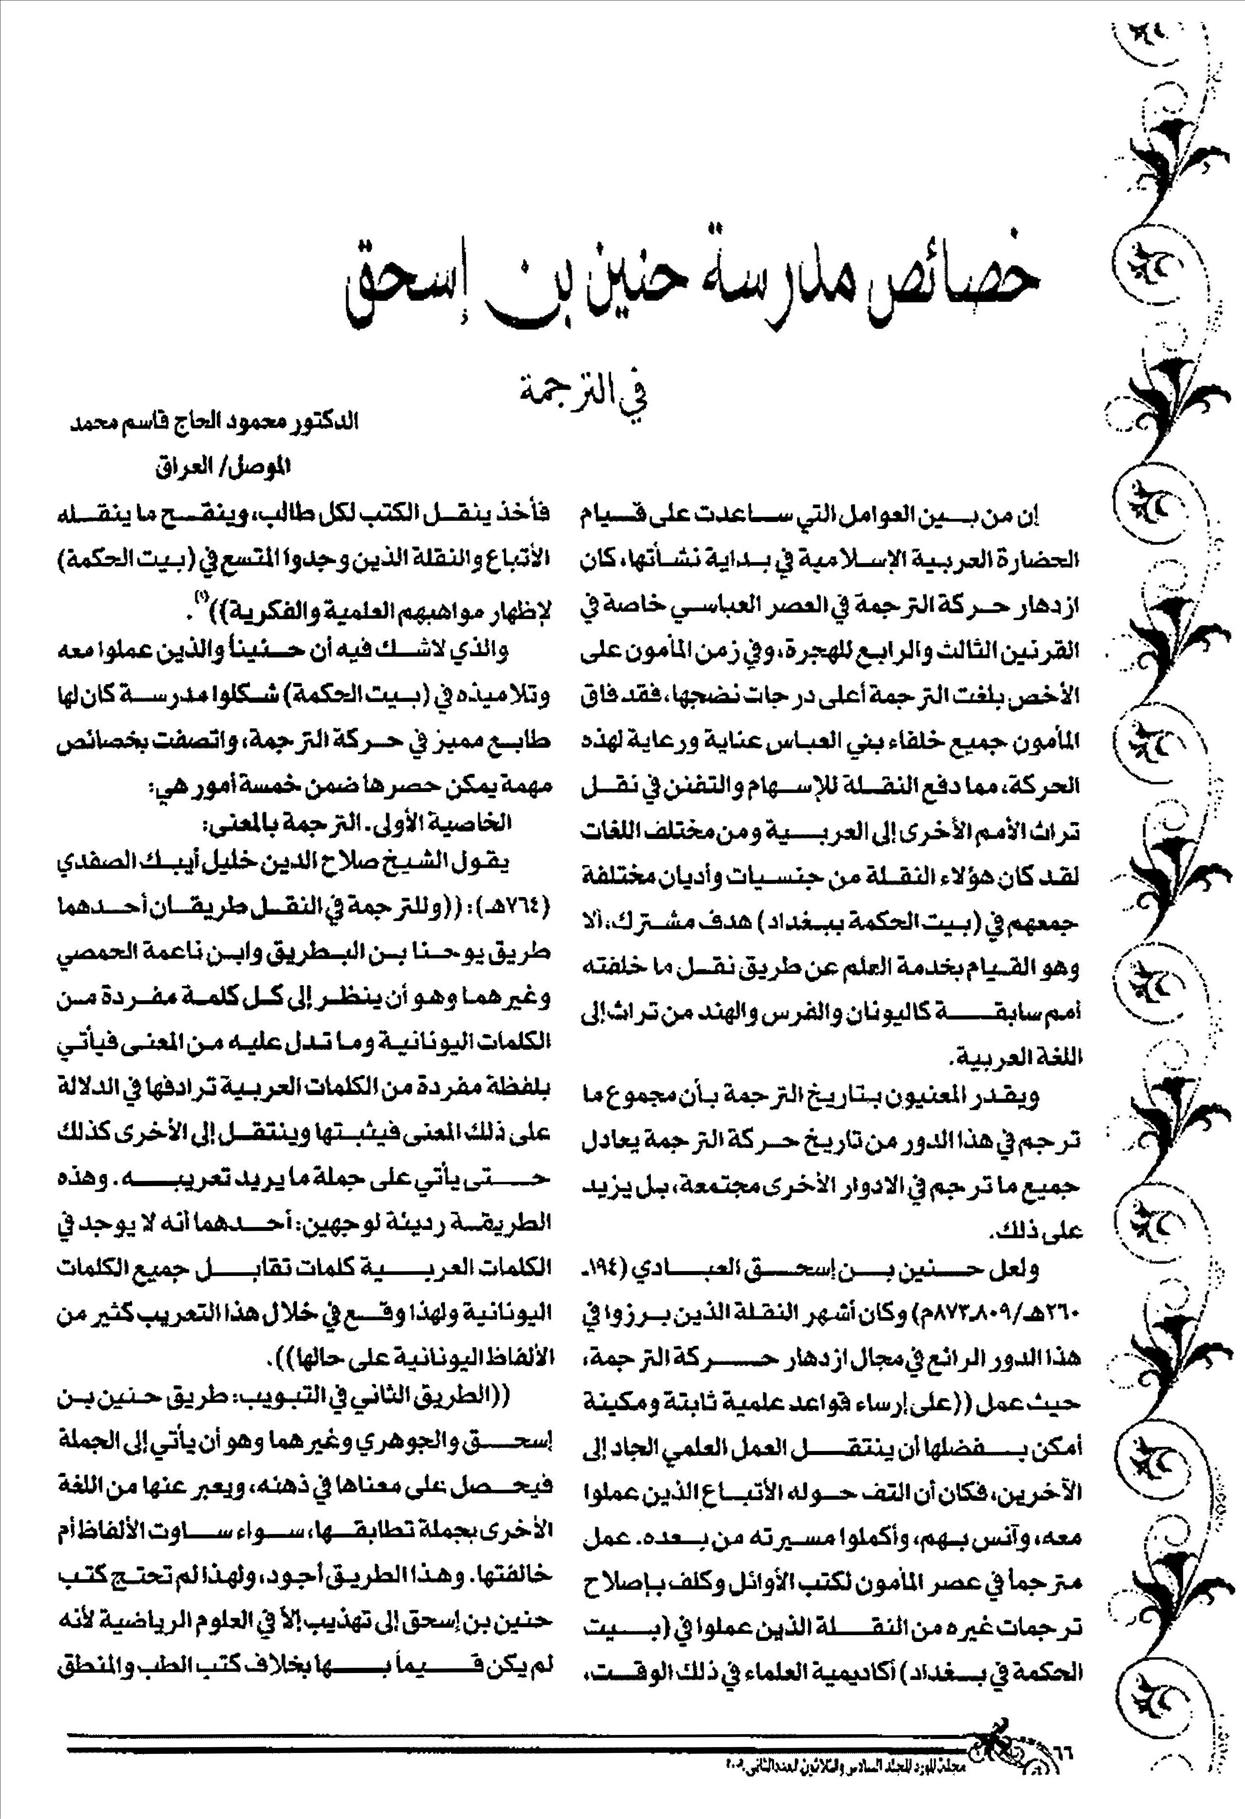 خصائص مدرسة حنين بن إسحق
في الترجمة
الدكتور محمود الحاج قاسم محمد
الموصل/ العراق
إن من بين العوامل التي ساعدت على قيام
الحضارة العربية الإسلامية في بداية نشأتها، كان
ازدهار حركة الترجمة في العصر العباسي خاصة في
القرنين الثالث والرابع للهجرة، وفي زمن المأمون على
الأخص بلغت الترجمة أعلى درجات نضجها، فقد فاق
المأمون جميع خلفاء بني العباس عناية ورعاية لهذه
الحركة، مما دفع النقلة للإسهام والتفنن في نقل
تراث الأمم الأخرى إلى العربية ومن مختلف اللغات
لقد كان هؤلاء النقلة من جنسيات وأديان مختلفة
جمعهم في (بيت الحكمة ببغداد) هدف مشترك، ألا
وهو القيام بخدمة العلم عن طريق نقل ما خلفته
أمم سابقة كاليونان والفرس والهند من تراث إلى
اللغة العربية.
ويقدر المعنيون بتاريخ الترجمة بأن مجموع ما
ترجم في هذا الدور من تاريخ حركة الترجمة يعادل
جميع ما ترجم في الادوار الأخرى مجتمعة، بل يزيد
على ذلك.
ولعل حنين بن إسحق العبادي (١٩٤ـ
٢٦٠هـ/٨٠٩ـ٨٧٣م) وكان أشهر النقلة الذين برزوا في
هذا الدور الرائع في مجال ازدهار حركة الترجمة،
حيث عمل ((على إرساء قواعد علمية ثابتة ومكينة
أمكن بفضلها أن ينتقل العمل العلمي الجاد إلى
الآخرين، فكان أن التف حوله الأتباع الذين عملوا
معه، وآنس بهم، وأكملوا مسيرته من بعده. عمل
مترجماً في عصر المأمون لكتب الأوائل وكلف بإصلاح
ترجمات غيره من النقلة الذين عملوا في (بيت
الحكمة في بغداد) أكاديمية العلماء في ذلك الوقت،
فأخذ ينقل الكتب لكل طالب، وينقح ما ينقله
الأتباع والنقلة الذين وجدوا المتسع في (بيت الحكمة)
لإظهار مواهبهم العلمية والفكرية))(١).
والذي لاشك فيه أن حنيناً والذين عملوا معه
وتلاميذه في (بيت الحكمة) شكلوا مدرسة كان لها
طابع مميز في حركة الترجمة، واتصفت بخصائص
مهمة يمكن حصرها ضمن خمسة أمور هي:
الخاصية الأولى. الترجمة بالمعنى:
يقول الشيخ صلاح الدين خليل أيبك الصفدي
(٧٦٤هـ): ((وللترجمة في النقل طريقان أحدهما
طريق يوحنا بن البطريق وابن ناعمة الحمصي
وغيرهما وهو أن ينظر إلى كل كلمة مفردة من
الكلمات اليونانية وما تدل عليه من المعنى فيأتي
بلفظة مفردة من الكلمات العربية ترادفها في الدلالة
على ذلك المعنى فيثبتها وينتقل إلى الأخرى كذلك
حتى يأتي على جملة ما يريد تعريبه. وهذه
الطريقة رديئة لوجهين: أحدهما أنه لا يوجد في
الكلمات العربية كلمات تقابل جميع الكلمات
اليونانية ولهذا وقع في خلال هذا التعريب كثير من
الألفاظ اليونانية على حالها)).
((الطريق الثاني في التبويب: طريق حنين بن
إسحق والجوهري وغيرهما وهو أن يأتي إلى الجملة
فيحصل على معناها في ذهنه، ويعبر عنها من اللغة
الأخرى بجملة تطابقها، سواء ساوت الألفاظ أم
خالفتها. وهذا الطريق أجود، ولهذا لم تحتج كتب
حنين بن إسحق إلى تهذيب إلاّ في العلوم الرياضية لأنه
لم يكن قيماً بها بخلاف كتب الطب والمنطق
٦٦
مجلة المورد المجلد السادس والثلاثون العدد الثاني